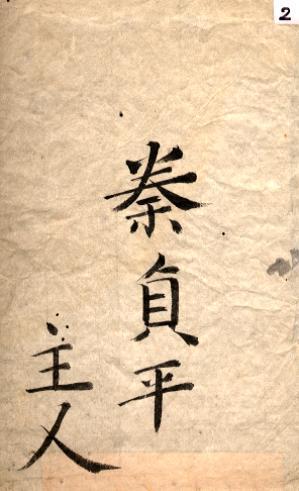 2
秦貞平
主人